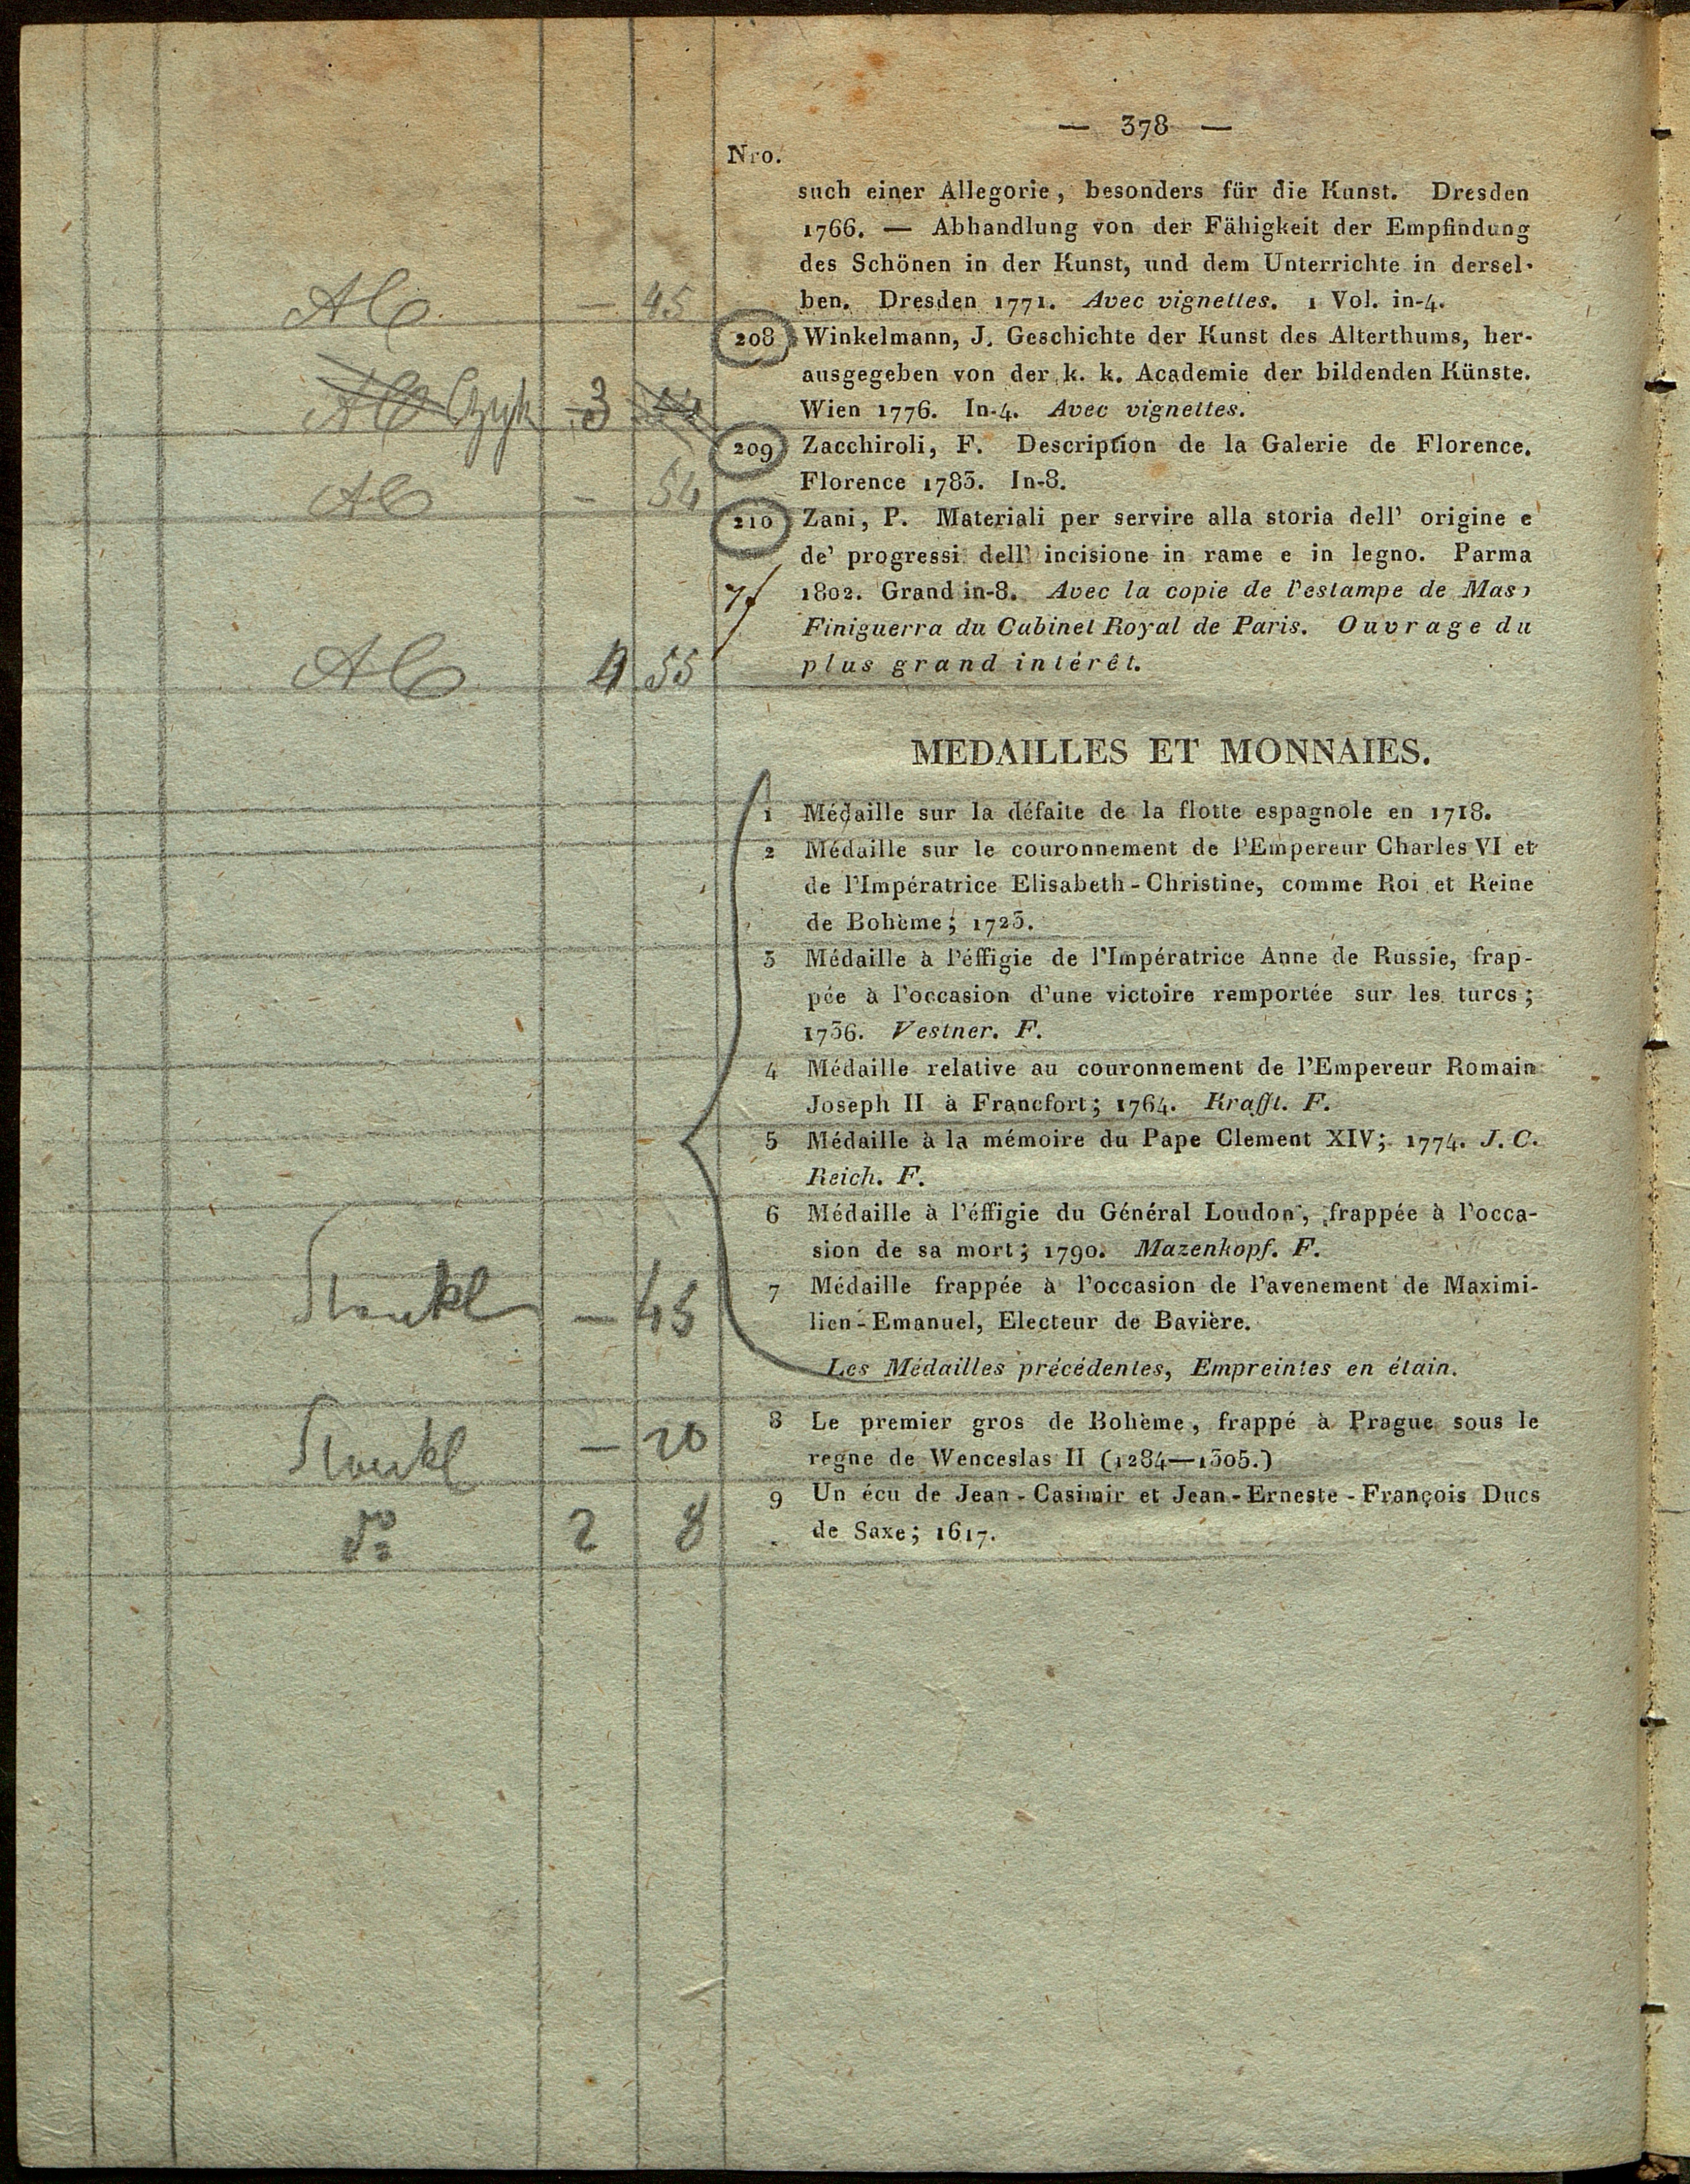 — 378 —
Nro.
such einer Allegorie, besonders für die Kunst. Dresden
1766. — Abhandlung von der Fähigkeit der Empfindung
des Schönen in der Kunst, und dem Unterrichte in dersel-
— 45 ben. Dresden 1771. Avec vignettes. 1 Vol. in-4.
208 Winkelmann, J. Geschichte der Kunst des Alterthums, her-
ausgegeben von der k. k. Academie der bildenden Künste.
3 Wien 1776. In-4. Avec vignettes.
209 Zacchiroli, F. Description de la Galerie de Florence.
— 54 Florence 1783. In-8.
210 Zani, P. Materiali per servire alla storia dell' origine e
de' progressi dell' incisione in rame e in legno. Parma
1802. Grand in-8. Avec la copie de l'estampe de Maso
Finiguerra du Cabinet Royal de Paris. Ouvrage du
4 55 plus grand intérêt.
MEDAILLES ET MONNAIES.
1 Médaille sur la défaite de la flotte espagnole en 1718.
2 Médaille sur le couronnement de l'Empereur Charles VI et
de l'Impératrice Elisabeth-Christine, comme Roi et Reine
de Bohème; 1723.
3 Médaille à l'éffigie de l'Impératrice Anne de Russie, frap-
pée à l'occasion d'une victoire remportée sur les turcs;
1736. Vestner. F.
4 Médaille relative au couronnement de l'Empereur Romain
Joseph II à Francfort; 1764. Krafft. F.
5 Médaille à la mémoire du Pape Clement XIV; 1774. J. C.
Reich. F.
6 Médaille à l'éffigie du Général Loudon, frappée à l'occa-
sion de sa mort; 1790. Mazenkopf. F.
7 Médaille frappée à l'occasion de l'avenement de Maximi-
— 45 lien-Emanuel, Electeur de Bavière.
Les Médailles précédentes, Empreintes en étain.
8 Le premier gros de Bohème, frappé à Prague sous le
— 20 regne de Wenceslas II (1284—1305.)
9 Un écu de Jean-Casimir et Jean-Erneste-François Ducs
do 2 8 de Saxe; 1617.